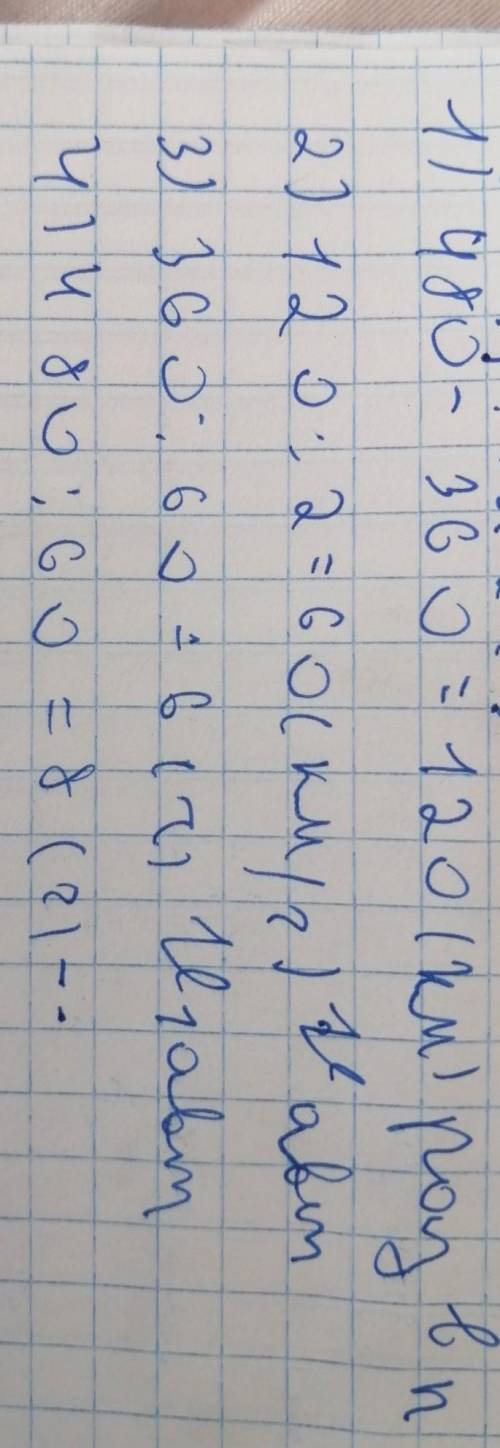 1) 480 - 360 = 120 (км) раз в п
2) 120 : 2 = 60 (км/ч) V авт
3) 360 : 60 = 6 (ч) авт
4) 480 : 60 = 8 (ч) - .